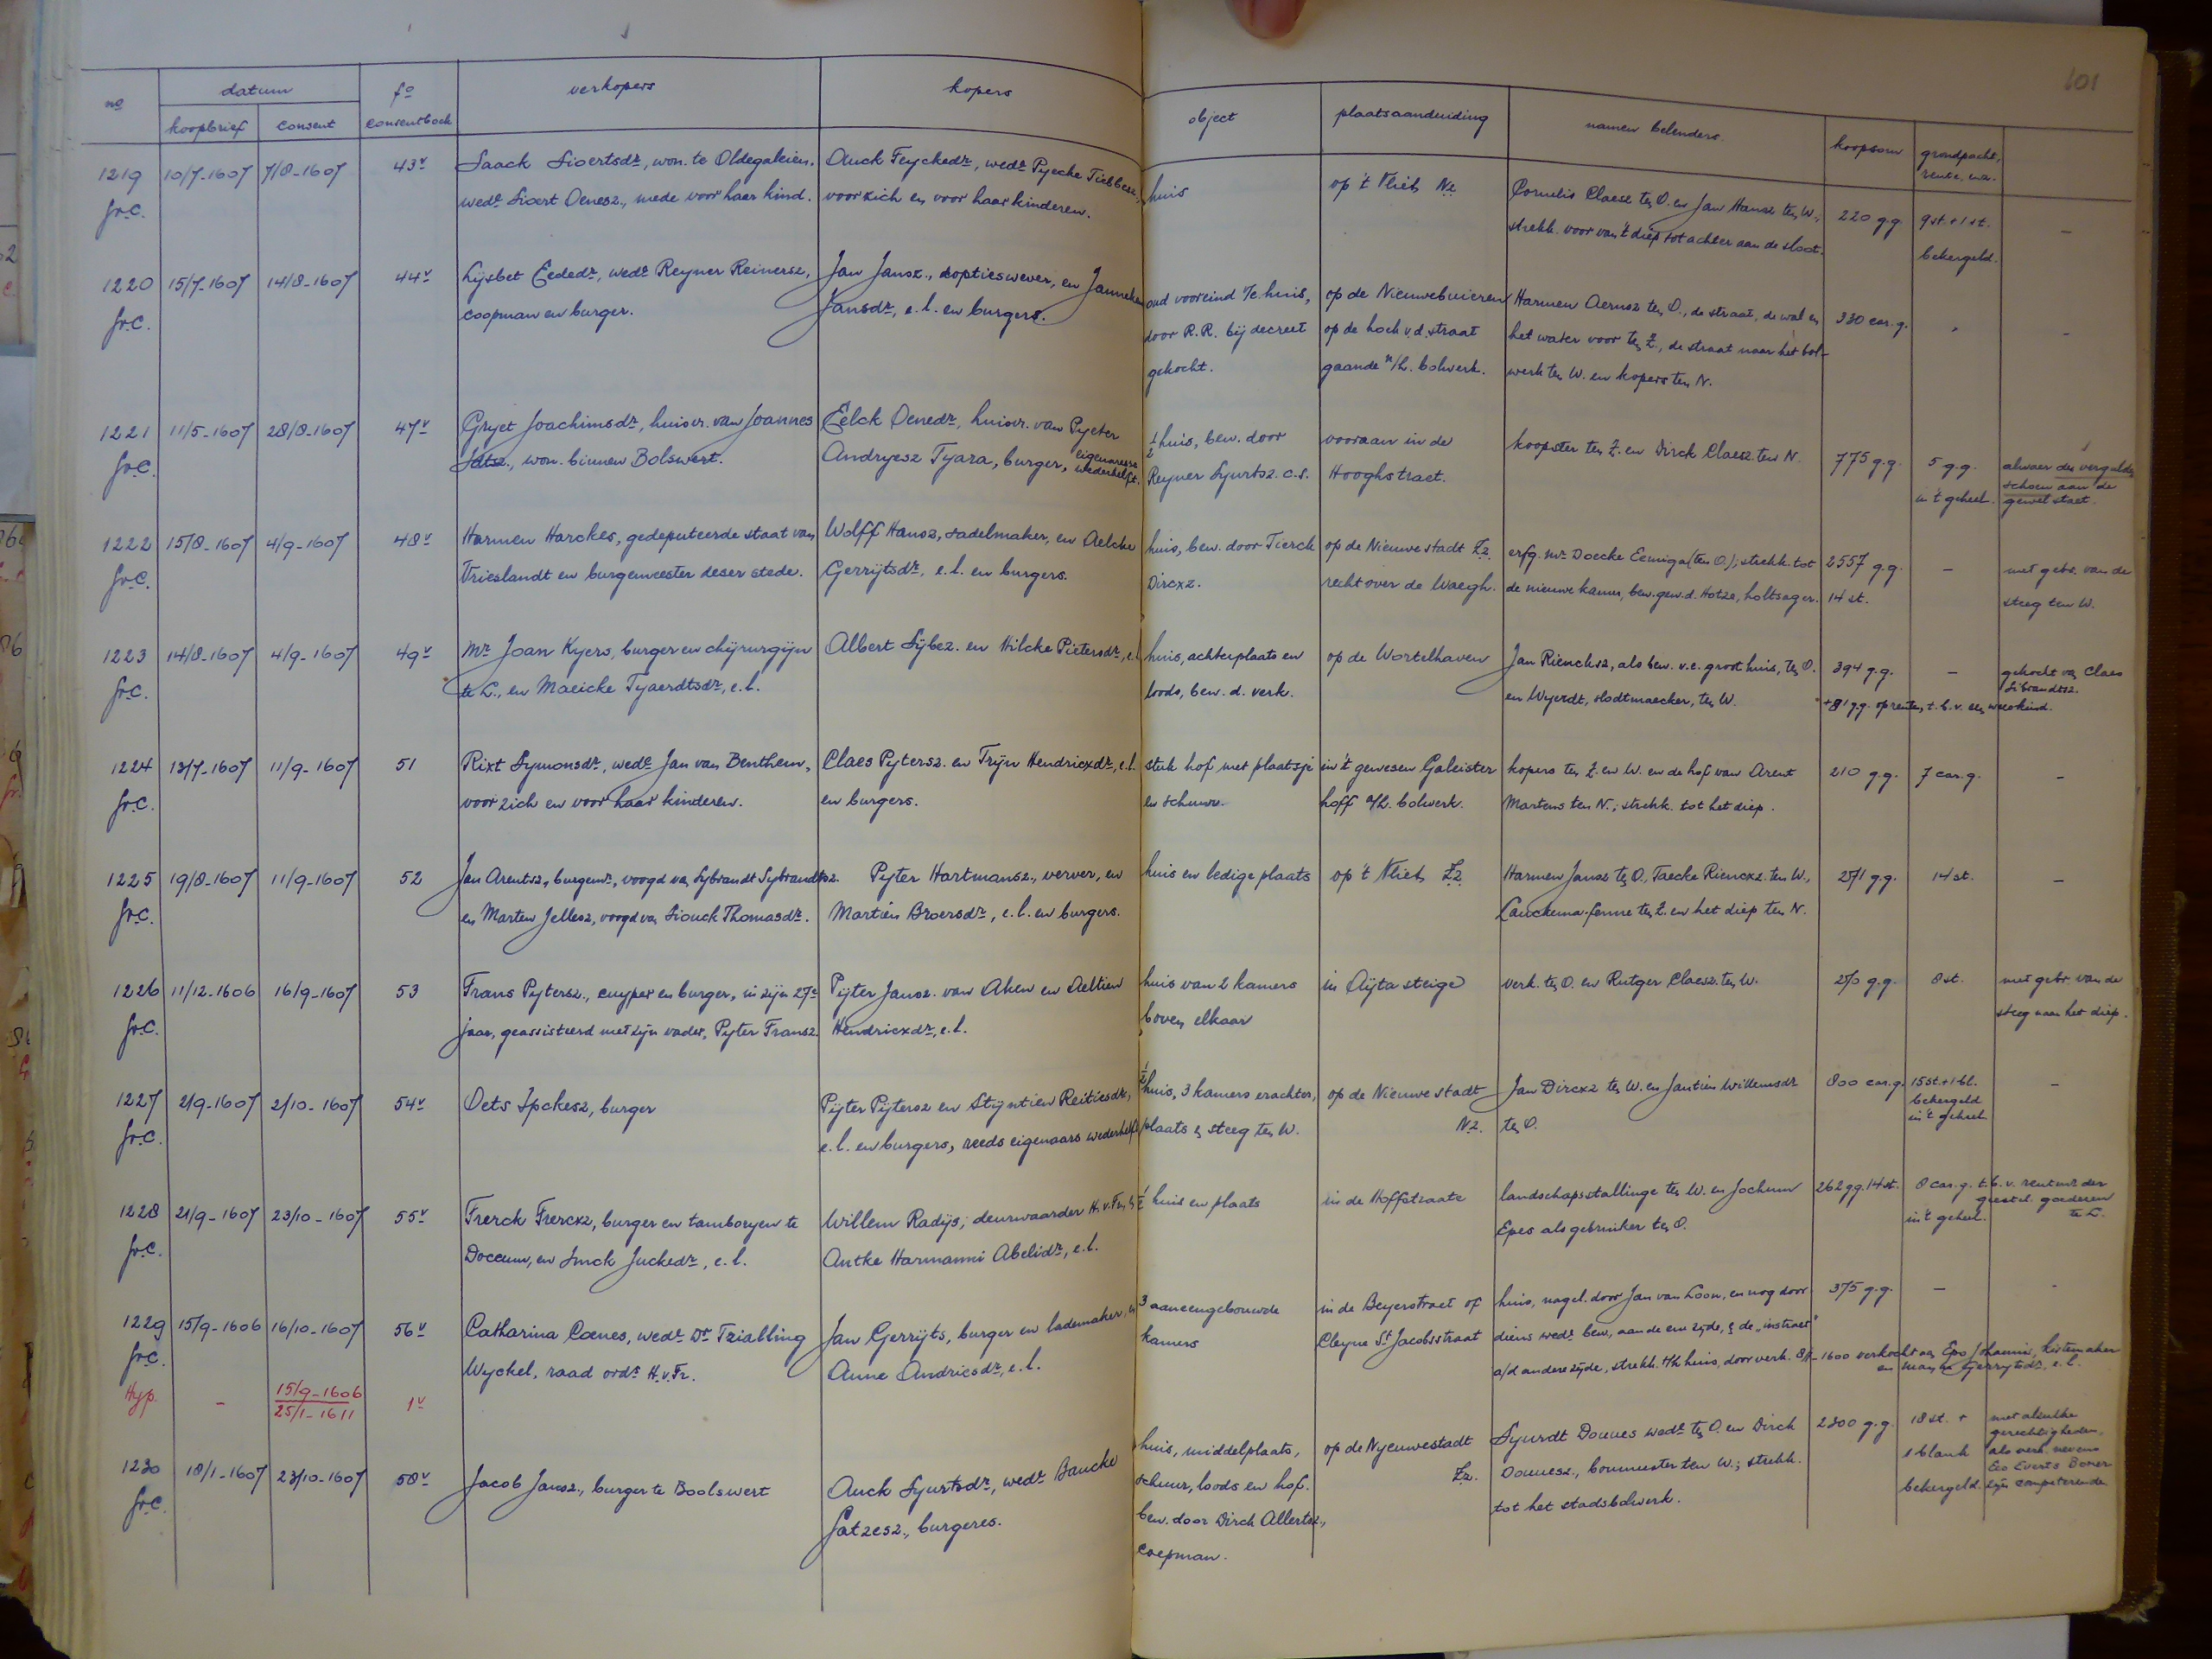 101
no datum fo verkopers kopers object plaatsaanduiding namen belenders koopsom grondpacht,
koopbrief consent consentboek rente, enz.
1219 10/7-1607 7/8-1607 43v Saack Sioertsdr, won. te Oldegaleien, Auck Feyckedr, wedr Pyecke Tiebbesz, huis op 't Vliet Nz Cornelis Claesz ten O. en Jan Hansz ten W., 220 g.g. 9 st. + 1 st. –
fr.C. wedr Sioert Oenesz., mede voor haar kind. voor zich en voor haar kinderen. strekk. voor van 't diep tot achter aan de sloot. bekergeld.
1220 15/7-1607 14/8-1607 44v Lijsbet Eededr, wedr Reyner Reinersz, Jan Jansz., doptieswever, en Janneken oud vooreind v/e huis, op de Nieuweburen Harmen Aernsz ten O., de straat, de wal en 330 car.g. –
fr.C. coopman en burger. Jansdr, e.l. en burgers. door R.R. bij decreet op de hoek v.d. straat het water voor ten Z., de straat naar het bol-
gekocht. gaande n/h. bolwerk. werk ten W. en kopers ten N.
1221 11/5-1607 28/8-1607 47v Gryet Joachimsdr, huisvr. van Joannes Eelck Oenedr, huisvr. van Pyeter ½ huis, bew. door vooraan in de koopster ten Z. en Dirck Claesz. ten N. 775 g.g. 5 g.g. alwaer de vergulde
fr.C. won. binnen Bolswert. Andryesz Tyara, burger, eigenaresse wederhelft. Reyner Sjurtsz. c.s. Hooghstraet. in 't geheel. schoen aan de
gewel staet.
1222 15/8-1607 4/9-1607 48v Harmen Harckes, gedeputeerde staat van Wolff Hansz, sadelmaker, en Aelcke huis, bew. door Tierck op de Nieuwestadt Zz. erfg. Mr Doecke Eeminga (ten O.); strekk. tot 2557 g.g. – met gebr. van de
fr.C. Vrieslandt en burgemeester deser stede. Gerrijtsdr, e.l. en burgers. Dircxz. recht over de Waegh. de nieuwe kamer, bew. gew. d. Hotze, holtsager. 14 st. steeg ten W.
1223 14/8-1607 4/9-1607 49v Mr Joan Kyers, burger en chijrurgijn Albert Sijbez. en Hilcke Pietersdr, e.l. huis, achterplaats en op de Wortelhaven Jan Riencksz, als bew. v.e. groot huis, ten O. 394 g.g. – gekocht van Claes
fr.C. te L., en Maeicke Tjaerdtsdr, e.l. loods, bew. d. verk. en Wyerdt, slodtmaecker, ten W. Sibrandtsz.
+ 81 g.g. op renten, t.b.v. een weeskind.
1224 13/7-1607 11/9-1607 51 Rixt Symonsdr, wedr Jan van Benthem, Claes Pytersz. en Trijn Hendricxdr, e.l. stuk hof met plaatsje in 't gewesen Galeister kopers ten Z. en W. en de hof van Arent 210 g.g. 7 car.g. –
fr.C. voor zich en voor haar kinderen. en burgers. en schuur. hoff a/h. bolwerk. Martens ten N.; strekk. tot het diep.
1225 19/8-1607 11/9-1607 52 Jan Arentsz, burgemr, voogd van Sybrandt Sybrandtsz. Pyter Hartmansz., verver, en huis en ledige plaats op 't Vliet Zz. Harmen Jansz ten O., Taecke Riencxz. ten W., 271 g.g. 14 st. –
fr.C. en Marten Jellesz, voogd van Siouck Thomasdr. Martien Broersdr, e.l. en burgers. Lauckema-fenne ten Z. en het diep ten N.
1226 11/12-1606 16/9-1607 53 Frans Pytersz., cuyper en burger, in zijn 27e Pyter Jansz. van Aken en Aeltien huis van 2 kamers in Aijta steige verk. ten O. en Rutger Claesz. ten W. 270 g.g. 8 st. met gebr. van de
fr.C. jaar, geassisteerd met zijn vader, Pyter Fransz. Hendricxdr, e.l. boven elkaar steeg naar het diep.
1227 2/9-1607 2/10-1607 54v Oets Ipckesz, burger Pijter Pijtersz en Stijntien Reitiesdr, ½ huis, 3 kamers erachter, op de Nieuwestadt Jan Dircxz ten W. en Jantien Willemsdr 800 car.g. 15 st. + 1 bl. –
fr.C. e.l. en burgers, reeds eigenaars wederhelft plaats en steeg ten W. Nz. ten O. bekergeld
in 't geheel
1228 21/9-1607 23/10-1607 55v Frerck Frercxz, burger en tamboryen te Willem Radijs, deurwaarder H.v.Fr., en ½ huis en plaats in de Hoffstraate landschapsstallinge ten W. en Jochum 262 gg. 14 st. 8 car.g. t.b.v. rentmr der
fr.C. Doccum, en Imck Juckedr, e.l. Antke Harmanni Abelidr, e.l. Epes als gebruiker ten O. in 't geheel. geestel. goederen
te L.
1229 15/9-1606 16/10-1607 56v Catharina Coenes, wedr Dr Tzialling Jan Gerrijts, burger en lademaker, en 3 aaneengebouwde in de Beyerstraet of huis, nagel. door Jan van Loon, en nog door 375 g.g. – -
fr.C. Wyckel, raad ordr H.v.Fr. Anne Andriesdr, e.l. kamers Cleyne St Jacobsstraat diens wedr bew., aan de ene zijde, en de „instraet"
a/d andere zijde, strekk. t/h huis, door verk. 8/1-1600 verkocht van Epo Johannis, kistemaker
en Mayke Gerrytsdr, e.l.
Hyp. – 15/9-1606 1v
25/1-1611
1230 18/1-1607 23/10-1607 58v Jacob Jansz., burger te Boolswert Auck Sjurtsdr, wedr Baucke huis, middelplaats, op de Nyeuwestadt Sjurdt Douwes wedr ten O. en Dirck 2300 g.g. 18 st. + met alsulke
fr.C. Gatzesz., burgeres. schuur, loods en hof. Zz. Douwesz., boumeester ten W.; strekk. 1 blank gerechtigheden,
bew. door Dirck Allertsz., tot het stadsbolwerk. bekergeld. als verk. nevens
coepman. Eeo Everts Boner
zijn competerende